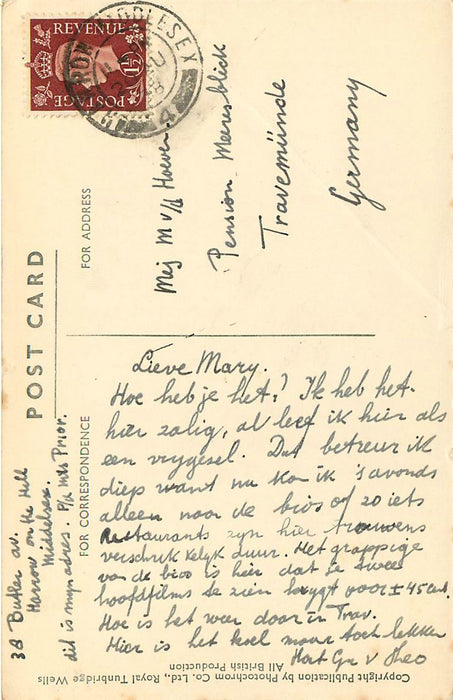 REVENUE
1½ D
POSTAGE
HARROW MIDDLESEX
4
POST CARD
FOR ADDRESS
Mej M v/d Hoeven
Pension Meeresblick
Travemünde
Germany
FOR CORRESPONDENCE
Lieve Mary.
Hoe heb je het? Ik heb het
hier zalig, al leef ik hier als
een vrijgesel. Dat betreur ik
diep want nu kan ik 's avonds
alleen naar de bios of zo iets
Restaurants zijn hier trouwens
verschrikkelijk duur. Het grappige
van de bios is hier dat je twee
hoofdfilms te zien krijgt voor ± 45 cent.
Hoe is het weer daar in Trav.
Hier is het koel maar toch lekker
Hart Gr v Theo
38 Butler av.
Harrow on the Hill
Middelsex.
dit is mijn adres. P/a Mrs Prior.
Copyright Publication by Photochrom Co. Ltd., Royal Tunbridge Wells
All British Production